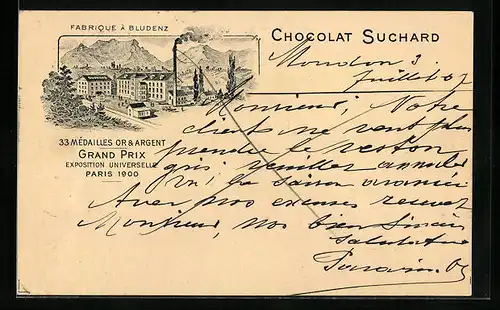 FABRIQUE À BLUDENZ
CHOCOLAT SUCHARD
33 MÉDAILLES OR & ARGENT
GRAND PRIX
EXPOSITION UNIVERSELLE
PARIS 1900
Moudon 3
Juillet 07
Monsieur, Notre
client ne veut plus
prendre le veston
gris veuillez annuler
vu la saison avancée
Avec nos excuses recevez
Monsieur, nos bien sincères
salutations